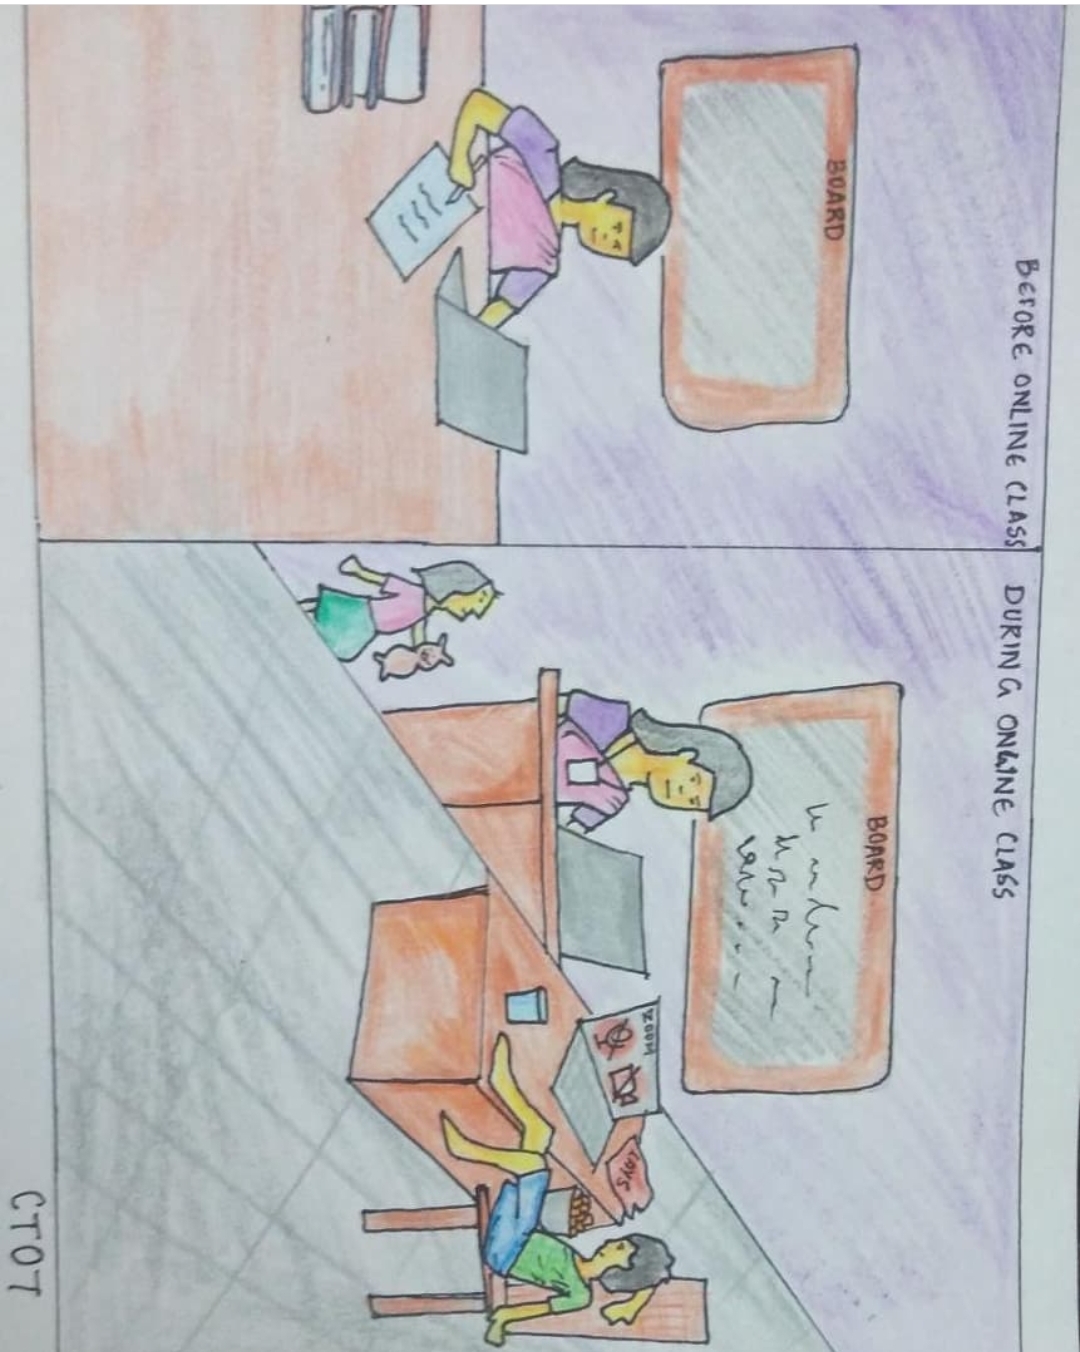 BEFORE ONLINE CLASS
BOARD
DURING ONLINE CLASS
BOARD
ZOOM
LAYS
CTOT